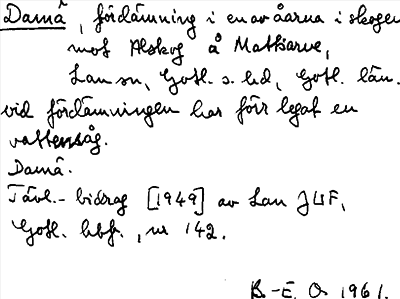 Damå, fördämning i en av åarna i skogen
mot Alskog å Mattsarve,
Lau sn, Gotl. s. hd, Gotl. län.
vid fördämningen har förr legat en
vattensåg.
Damå.
Tävl.-bidrag [1949] av Lau JUF,
Gotl. hbf., nr 142.
B.-E. O. 1961.